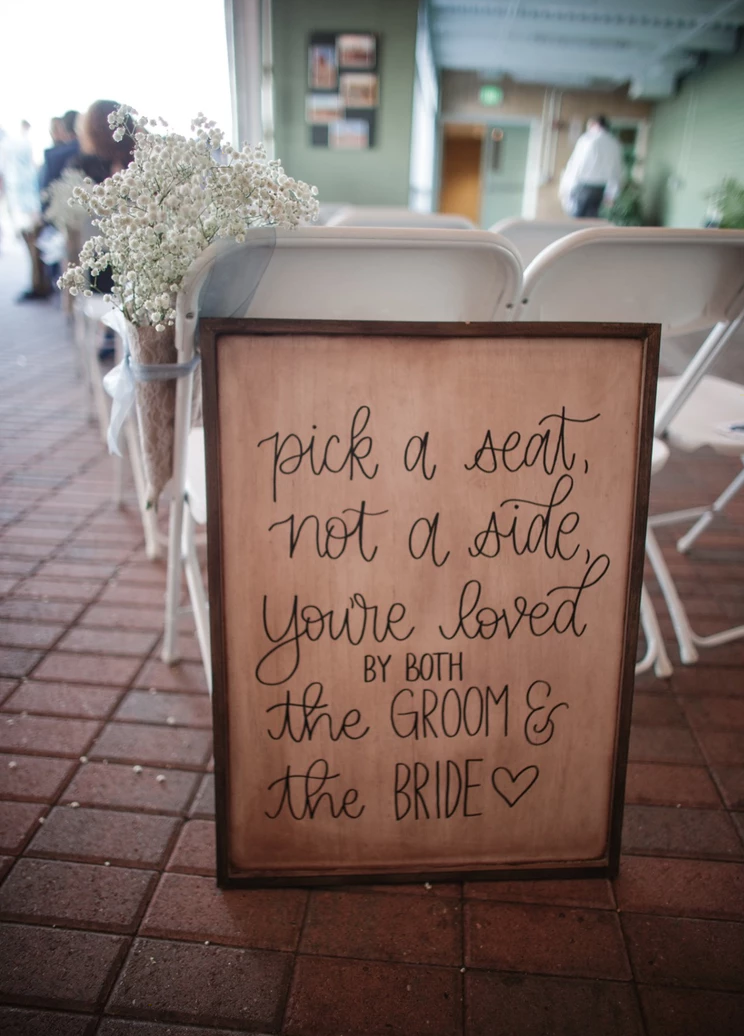 pick a seat,
not a side,
you're loved
BY BOTH
the GROOM &
the BRIDE♡